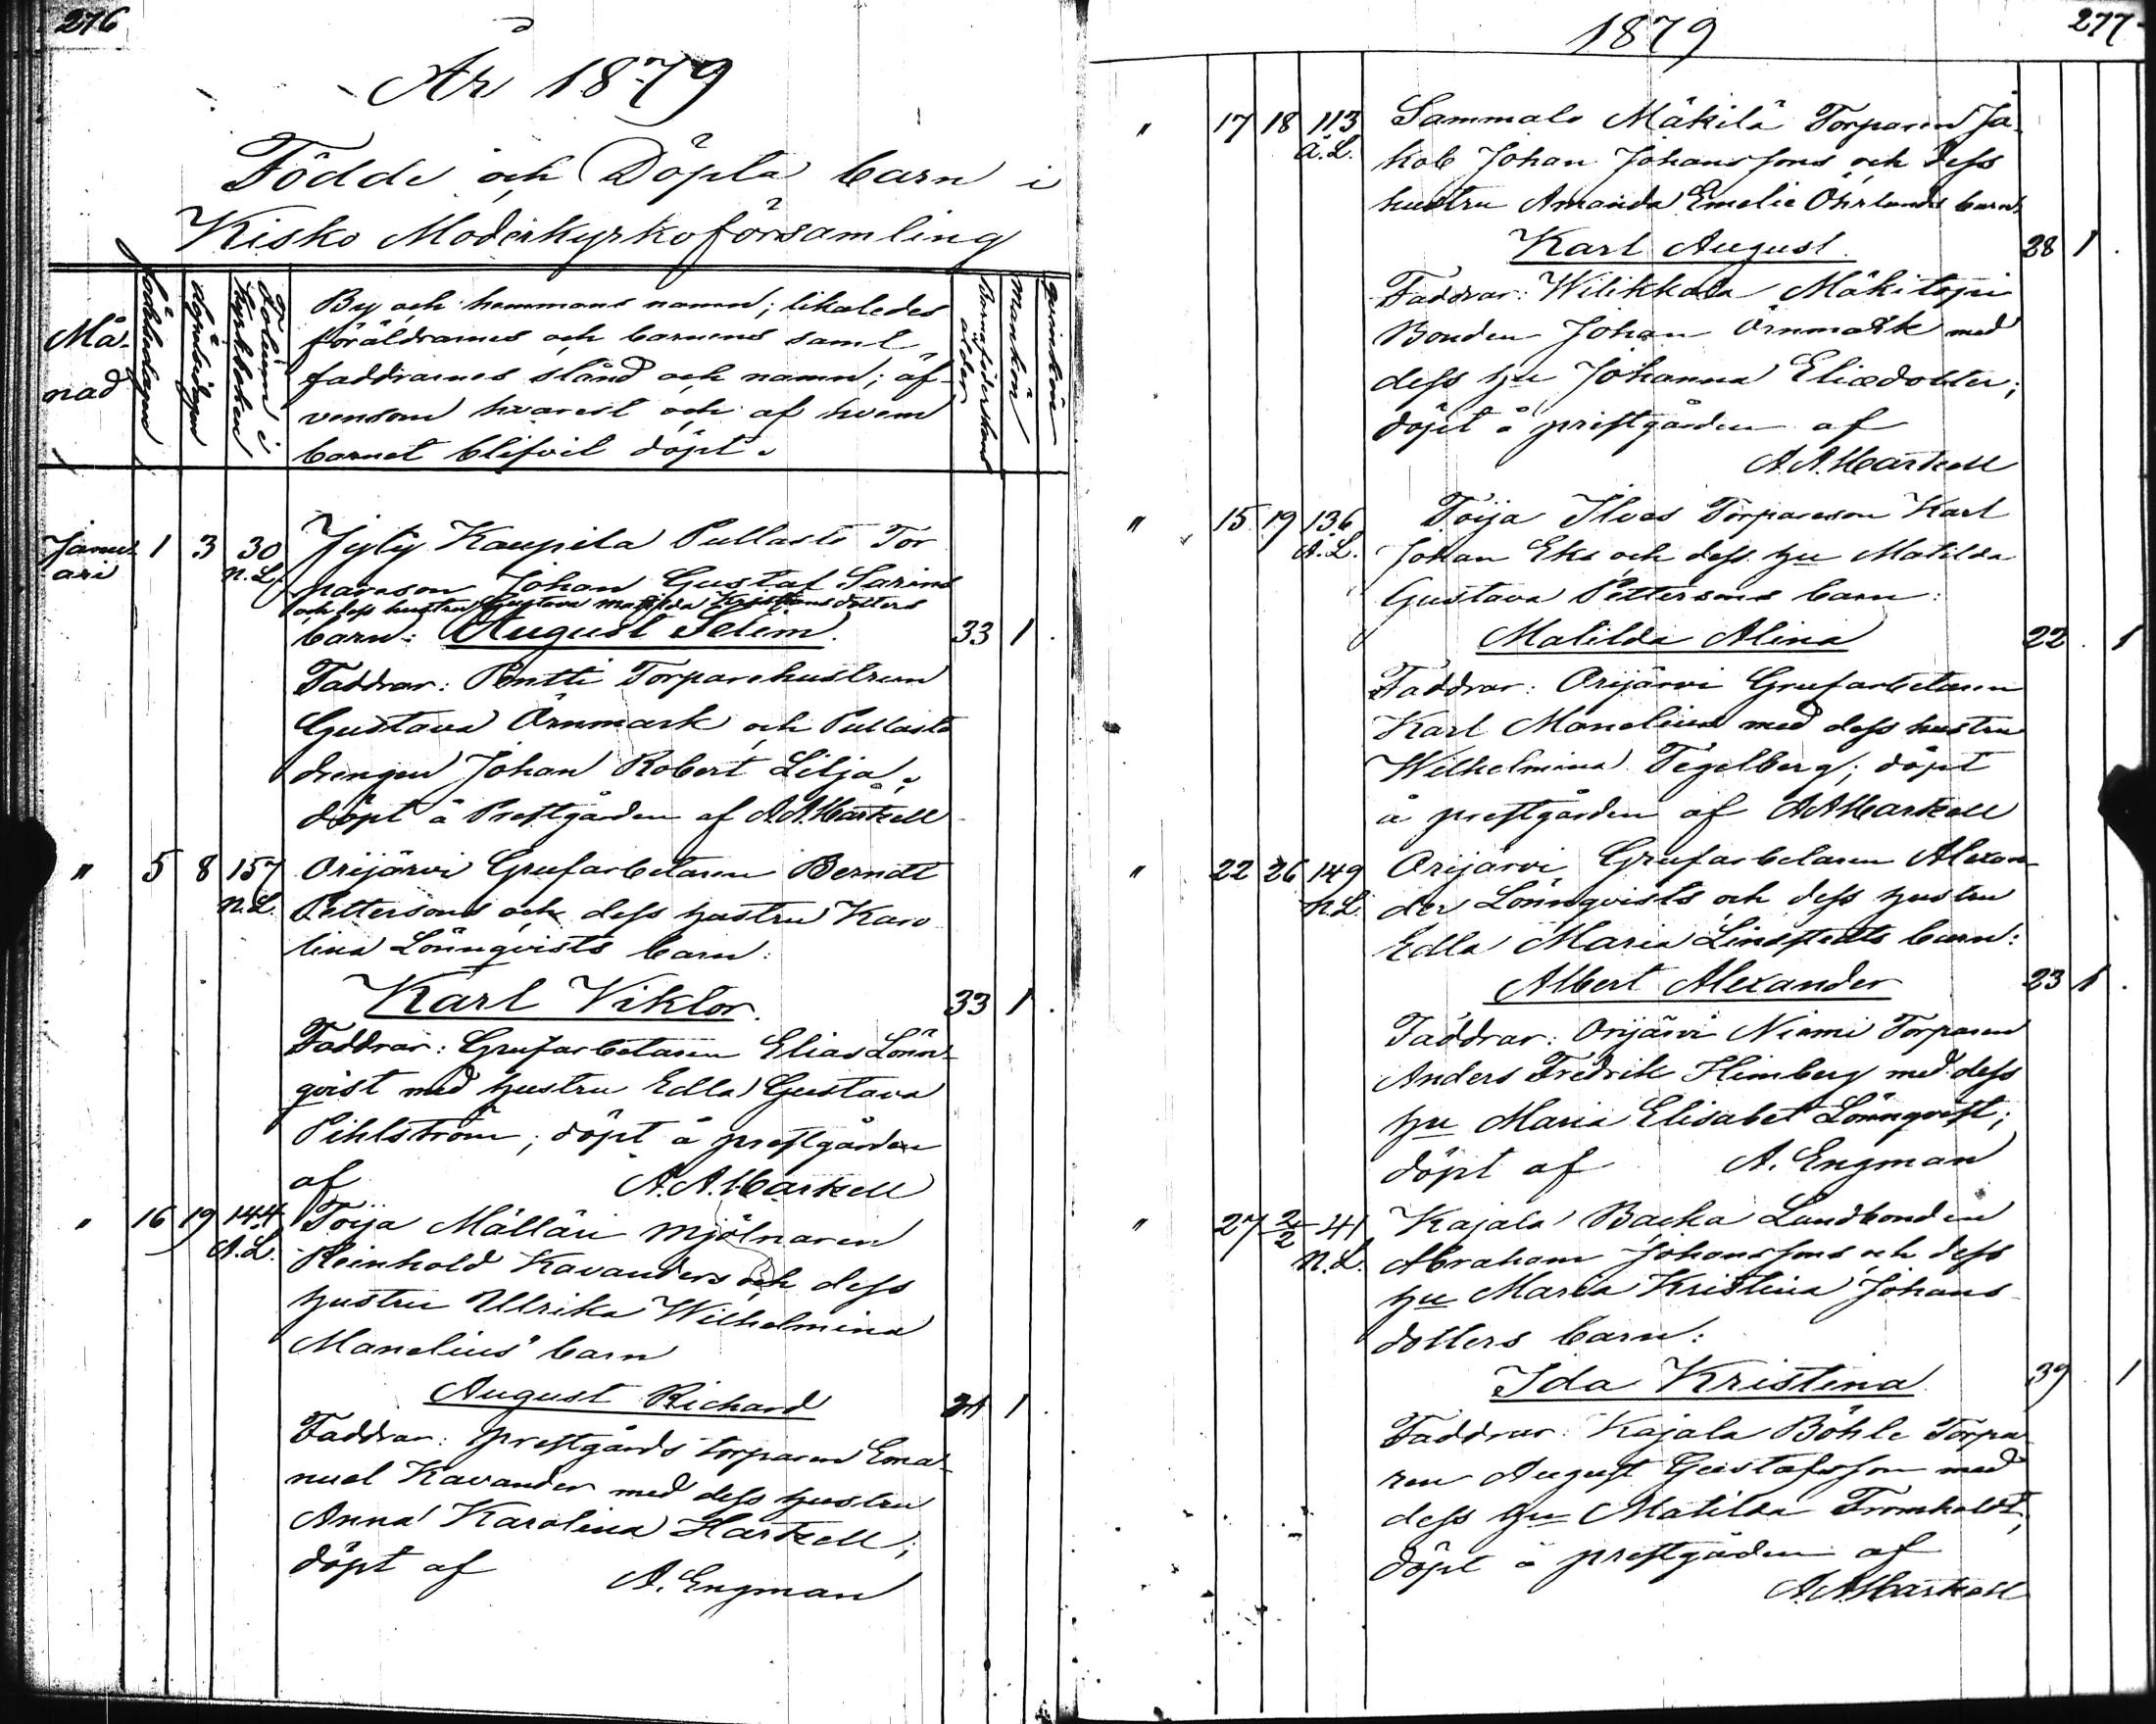 276
År 1879
Födde och Döpta barn i
Kisko Moderkyrkoförsamling
Må-
nad
födelsedagen
döpelsedagen
Folium i
kyrkboken
By och hemmans namn; likaledes
föräldrarnes och barnens samt
faddrarnes stånd och namn; äf-
vensom hvarest och af hvem
barnet blifvit döpt.
Barnaföderskans
ålder
Mankön
qvinkön
Janu-
ari
1 3 30
n.L.
Jyly Kaupila Pullasto Tor
pareson Johan Gustaf Sarins
och dess hustru Gustava Matilda Kristians dotters
barn: August Selim. 33 1
Faddrar: Pentti Torparehustrun
Gustava Örnmark och Pullasto
drengen Johan Robert Lilja;
döpt å Prestgården af A.A. Hartzell
" 5 8 157
n.L.
Orijärvi Grufarbetaren Berndt
Pettersons och dess hustru Karo
lina Lönnqvists barn:
Karl Viktor. 33 1
Faddrar: Grufarbetaren Elias Lönn-
qvist med hustru Edla Gustava
Pihlström; döpt å prestgården
af A.A. Hartzell
" 16 19 144
A.L.
Toija Mälläri Mjölnaren
Reinhold Kavanders och dess
hustru Ulrika Wilhelmina
Manelius' barn
August Richard 1
Faddrar: prestgårds torparen Ema-
nuel Kavander med dess hustru
Anna Karolina Hartzell;
döpt af A. Engman
1879
277
" 17 18 113
a.L.
Sammalo Mäkilä Torparen Ja-
kob Johan Johanssons och dess
hustru Amanda Emelie Öhrlunds barn
Karl August. 28 1
Faddrar: Wilikkala Mäkitopi
Bonden Johan Örnmark med
dess hu Johanna Eliædotter;
döpt å prestgården af
A.A. Hartzell
" 15 19 136
A.L.
Toija Ilvas Torpareson Karl
Johan Eks och dess hu Matilda
Gustava Pettersons barn:
Matilda Alina 22 1
Faddrar: Orijärvi Grufarbetaren
Karl Manelius med dess hustru
Wilhelmina Tegelberg; döpt
å prestgården af A.A. Hartzell
" 22 26 149
n.L.
Orijärvi Grufarbetaren Alexan-
der Lönnqvists och dess hustru
Edla Maria Lindstedts barn:
Albert Alexander 23 1
Faddrar: Orijärvi Niemi Torparen
Anders Fredrik Himberg med dess
hu Maria Elisabet Lönnqvist;
döpt af A. Engman
" 27 2/2 41
n.L.
Kajala Backa Landbonden
Abraham Johanssons och dess
hu Maria Kristina Johans
dotters barn:
Ida Kristina 39 1
Faddrar: Kajala Böhle Torpa
ren August Gustafsson med
dess hu Matilda Tromholdt;
döpt å prestgården af
A.A. Hartzell